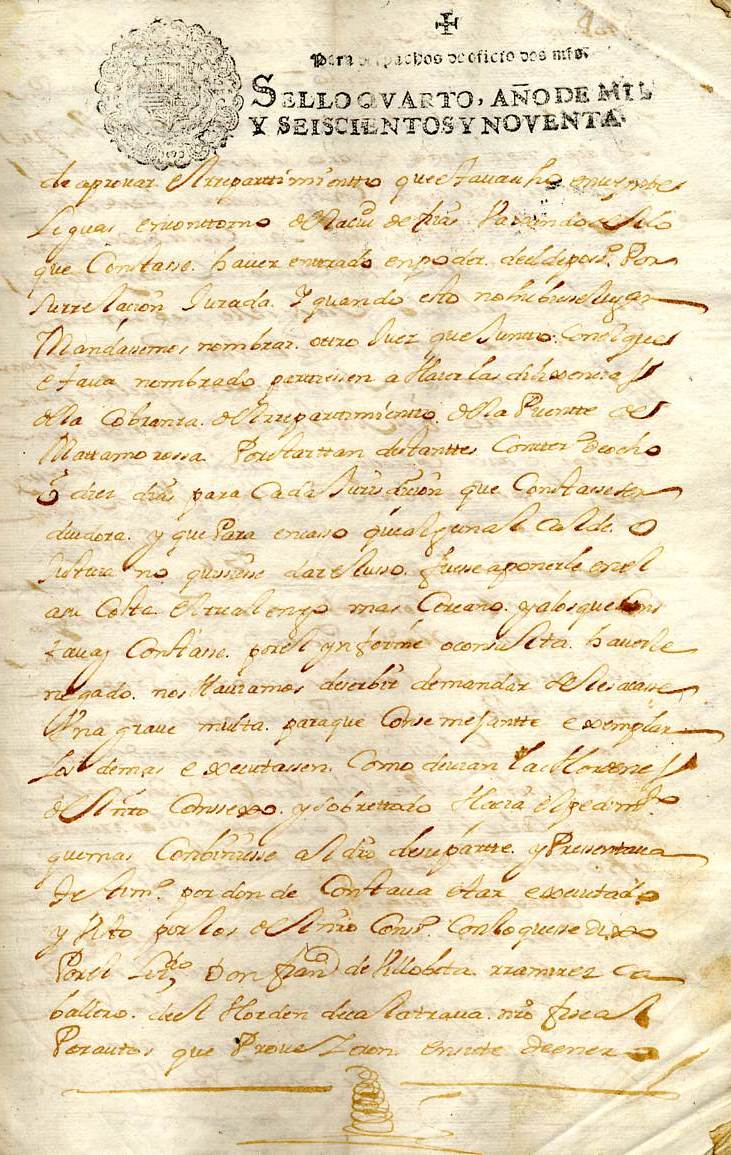 Para despachos de oficio dos mrs.
SELLO QVARTO, AÑO DE MIL
Y SEISCIENTOS Y NOVENTA.
de aprouar el rrepartimientto que estaua hecho en veynte
Leguas en conttorno
que Constasse hauer entrado en poder del deposº. Por
su rrelacion Jurada. Y quando esto no hubiese lugar
Mandasemos nombrar otro Juez que Juntto con el que
estaua nombrado partiessen a Hacer las dilixencias
de la Cobranza del rrepartimientto de la Puentte de
Mattamorossa Por estar ttan distanttes Con tterº de ocho
o diez dias para Cada Jurisdicion que Constasse ser
deudora. y que Para en casso que alguna Alcalde o
Justicia no quisiese dar el uso. fuese a ponerle en el
a su Costa el rrealengo mas Cercano y a los que
Constasse por el ynforme o consulta hauerle
negado nos Hauiamos de seruir de mandar se les sacasse
Vna graue multa para que Con semejantte exemplar
Los demas executassen Como deuian las Hordenes
del nrõ Conssexo. y sobre ttodo Hacia el pedimtº
que mas Conbiniesse al drº de su partte. y Presentaua
Testimº. por donde Constaua estar executado
y visto por los del nrõ Consº. Con lo que se dixo
Por el Lizdo Don franco de Villobeta rramirez Ca
ballero del Horden de calatraua nrõ fiscal
Por auttos que Proueyeron en siete de enero